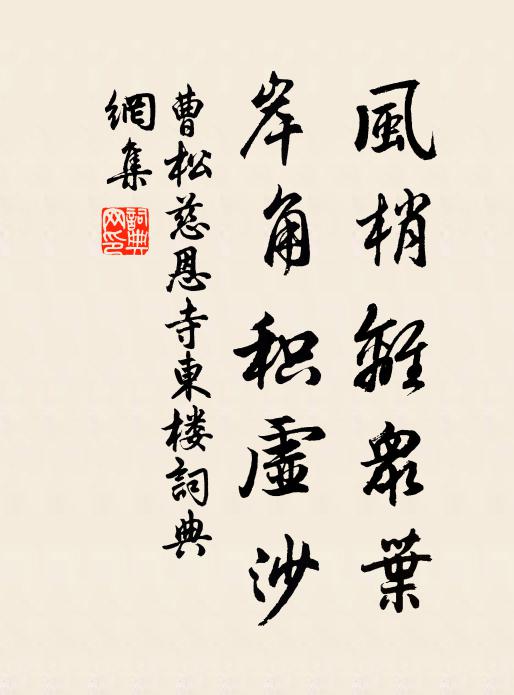 風梢離眾葉
岸角积虛沙
曹松慈恩寺東楼詞典
網集
詞典
网印